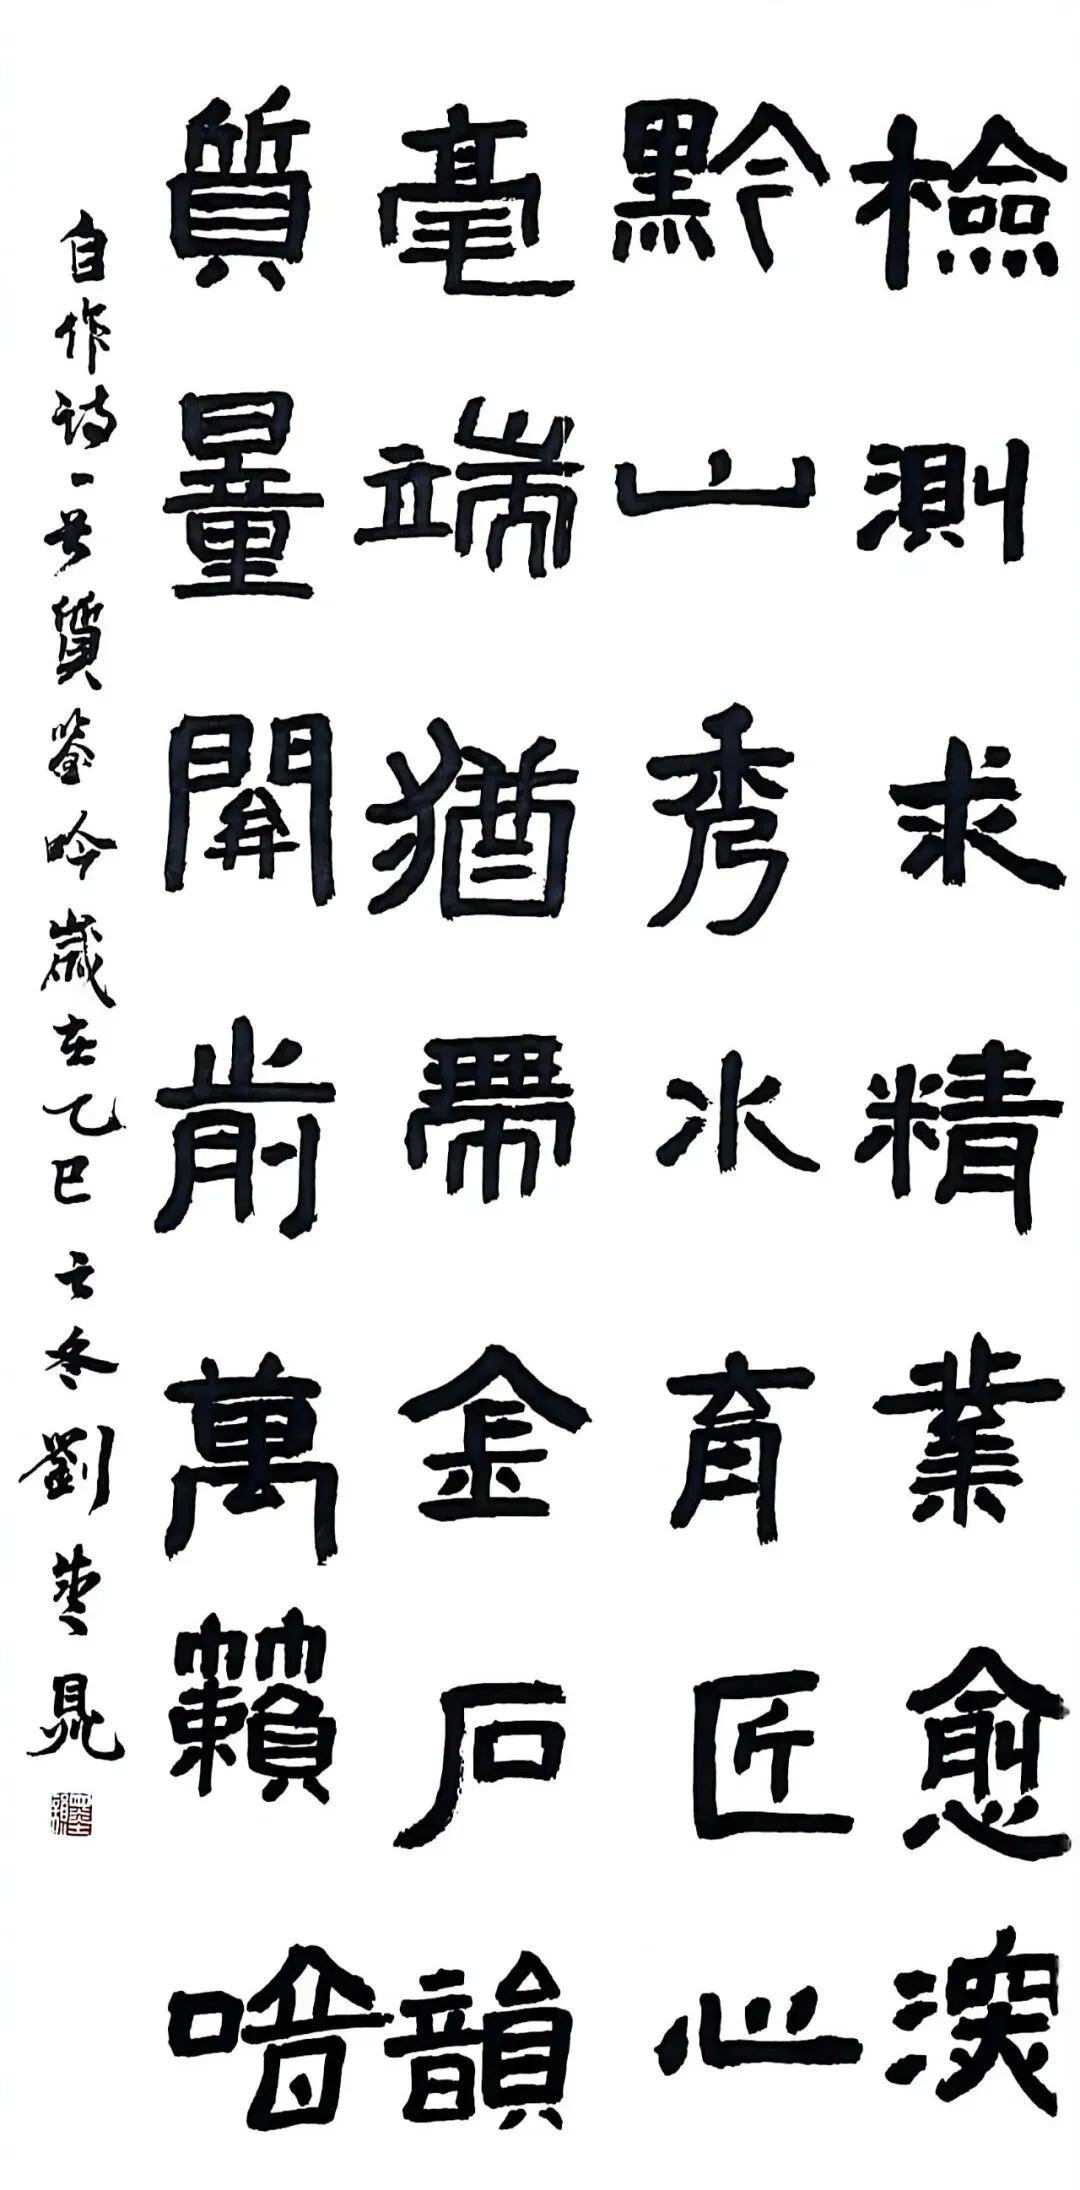 檢測求精業愈深
黔山秀水育匠心
毫端猶帶金石韻
質量開前萬籟唅
自作诗一首質鉴吟歲在乙巳之冬劉